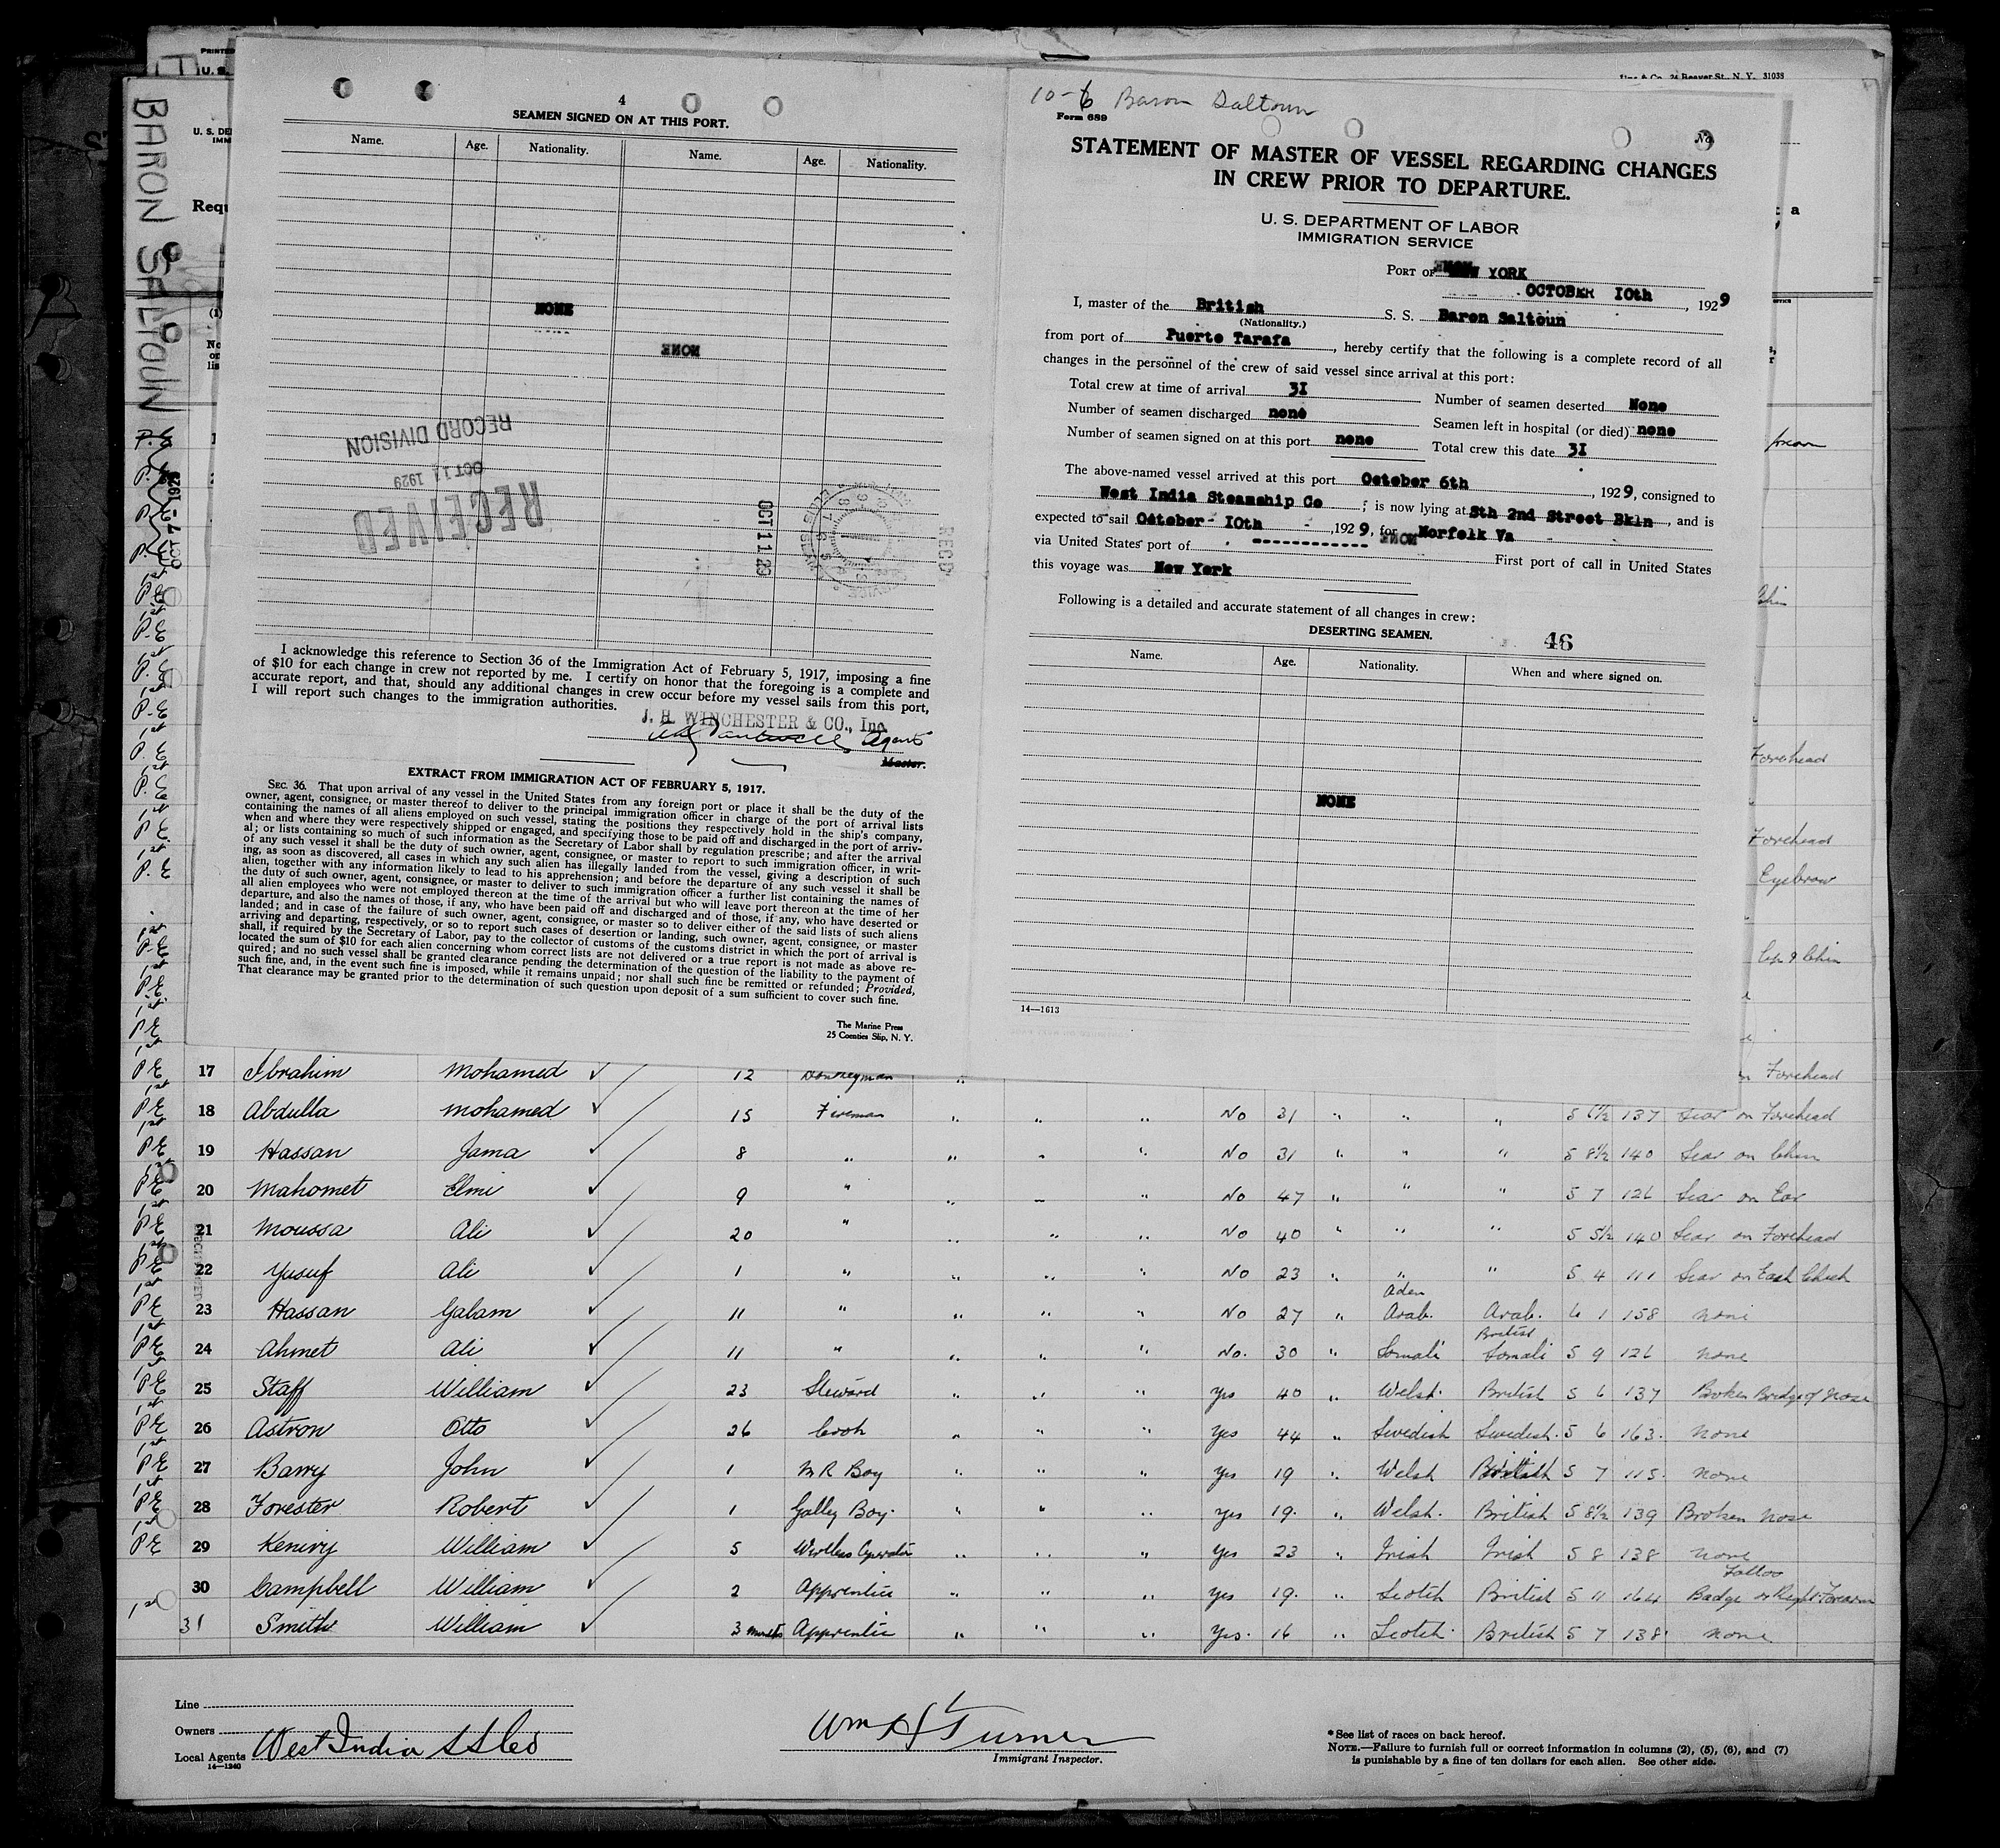 BARON SALTOUN
PRINTED
U. S.
U. S. DE
IMM
Requ
4
SEAMEN SIGNED ON AT THIS PORT.
Name. Age. Nationality. Name. Age. Nationality.
NONE
NONE
RECORD DIVISION
OCT 11 1929
RECEIVED
OCT 11 29
REC'D
OCT 7 - 1929
I acknowledge this reference to Section 36 of the Immigration Act of February 5, 1917, imposing a fine
of $10 for each change in crew not reported by me. I certify on honor that the foregoing is a complete and
accurate report, and that, should any additional changes in crew occur before my vessel sails from this port,
I will report such changes to the immigration authorities.
J. H. WINCHESTER & CO., Inc.
Agents
Master.
EXTRACT FROM IMMIGRATION ACT OF FEBRUARY 5, 1917.
SEC. 36. That upon arrival of any vessel in the United States from any foreign port or place it shall be the duty of the
owner, agent, consignee, or master thereof to deliver to the principal immigration officer in charge of the port of arrival lists
containing the names of all aliens employed on such vessel, stating the positions they respectively hold in the ship's company,
when and where they were respectively shipped or engaged, and specifying those to be paid off and discharged in the port of arriv-
al; or lists containing so much of such information as the Secretary of Labor shall by regulation prescribe; and after the arrival
of any such vessel it shall be the duty of such owner, agent, consignee, or master to report to such immigration officer, in writ-
ing, as soon as discovered, all cases in which any such alien has illegally landed from the vessel, giving a description of such
alien, together with any information likely to lead to his apprehension; and before the departure of any such vessel it shall be
the duty of such owner, agent, consignee, or master to deliver to such immigration officer a further list containing the names of
all alien employees who were not employed thereon at the time of the arrival but who will leave port thereon at the time of her
departure, and also the names of those, if any, who have been paid off and discharged and of those, if any, who have deserted or
landed; and in case of the failure of such owner, agent, consignee, or master so to deliver either of the said lists of such aliens
arriving and departing, respectively, or so to report such cases of desertion or landing, such owner, agent, consignee, or master
shall, if required by the Secretary of Labor, pay to the collector of customs of the customs district in which the port of arrival is
located the sum of $10 for each alien concerning whom correct lists are not delivered or a true report is not made as above re-
quired; and no such vessel shall be granted clearance pending the determination of the question of the liability to the payment of
such fine, and, in the event such fine is imposed, while it remains unpaid; nor shall such fine be remitted or refunded; Provided,
That clearance may be granted prior to the determination of such question upon deposit of a sum sufficient to cover such fine.
The Marine Press
25 Coenties Slip, N. Y.
24 Beaver St., N. Y. 31038
10-6 Baron Saltoun
Form 689
No.
STATEMENT OF MASTER OF VESSEL REGARDING CHANGES
IN CREW PRIOR TO DEPARTURE.
U. S. DEPARTMENT OF LABOR
IMMIGRATION SERVICE
PORT OF NEW YORK
OCTOBER 10th, 1929
I, master of the British S. S. Baron Saltoun
(Nationality.)
from port of Puerto Tarafa, hereby certify that the following is a complete record of all
changes in the personnel of the crew of said vessel since arrival at this port:
Total crew at time of arrival 31 Number of seamen deserted None
Number of seamen discharged none Seamen left in hospital (or died) none
Number of seamen signed on at this port none Total crew this date 31
The above-named vessel arrived at this port October 6th, 1929, consigned to
West India Steamship Co; is now lying at Sth 2nd Street Bkln, and is
expected to sail October 10th, 1929, for Norfolk Va
via United States port of ------------ NONE First port of call in United States
this voyage was New York
Following is a detailed and accurate statement of all changes in crew:
DESERTING SEAMEN. 46
Name. Age. Nationality. When and where signed on.
NONE
14—1613
Chin
Forehead
Forehead
Eyebrow
Lip & Chin
17 Ibrahim Mohamed 12 Donkeyman " Forehead
18 Abdulla Mohamed 15 Fireman " " " No 31 " " " 137 Scar on Forehead
19 Hassan Jama 8 " " " " No 31 " " " 5 8½ 140 Scar on Chin
20 Mahomet Elmi 9 " " " " No 47 " " " 5 7 126 Scar on Ear
21 Moussa Ali 20 " " " " No 40 " " " 5 5½ 140 Scar on Forehead
22 Yusuf Ali 1 " " " " No 23 " " " 5 4 111 Scar on Each Cheek
23 Hassan Galam 11 " " " " No 27 " Aden Arab. Arab. 6 1 158 none
24 Ahmet Ali 11 " " " " No. 30 " Somali British Somali 5 9 126 none
25 Staff William 23 Steward " " " yes 40 " Welsh British 5 6 137 Broken Bridge of Nose
26 Astron Otto 26 Cook " " " yes 44 " Swedish Swedish. 5 6 163 none
27 Barry John 1 M R Boy " " " yes 19 " Welsh British 5 7 115 none
28 Forester Robert 1 Galley Boy " " " yes 19. " Welsh. British 5 8½ 139 Broken Nose
29 Kenivy William 5 Wireless Operator " " " yes 23 " Irish Irish 5 8 138 none
30 Campbell William 2 Apprentice " " " yes 19. " Scotch British 5 11 164 Tattoo Badge on Right Forearm
31 Smith William 3 months Apprentice " " " yes. 16 " Scotch British 5 7 138 none
Line
Owners
Local Agents West India SS Co
14—1240
Wm H Turner
Immigrant Inspector.
*See list of races on back hereof.
NOTE.—Failure to furnish full or correct information in columns (2), (5), (6), and (7)
is punishable by a fine of ten dollars for each alien. See other side.